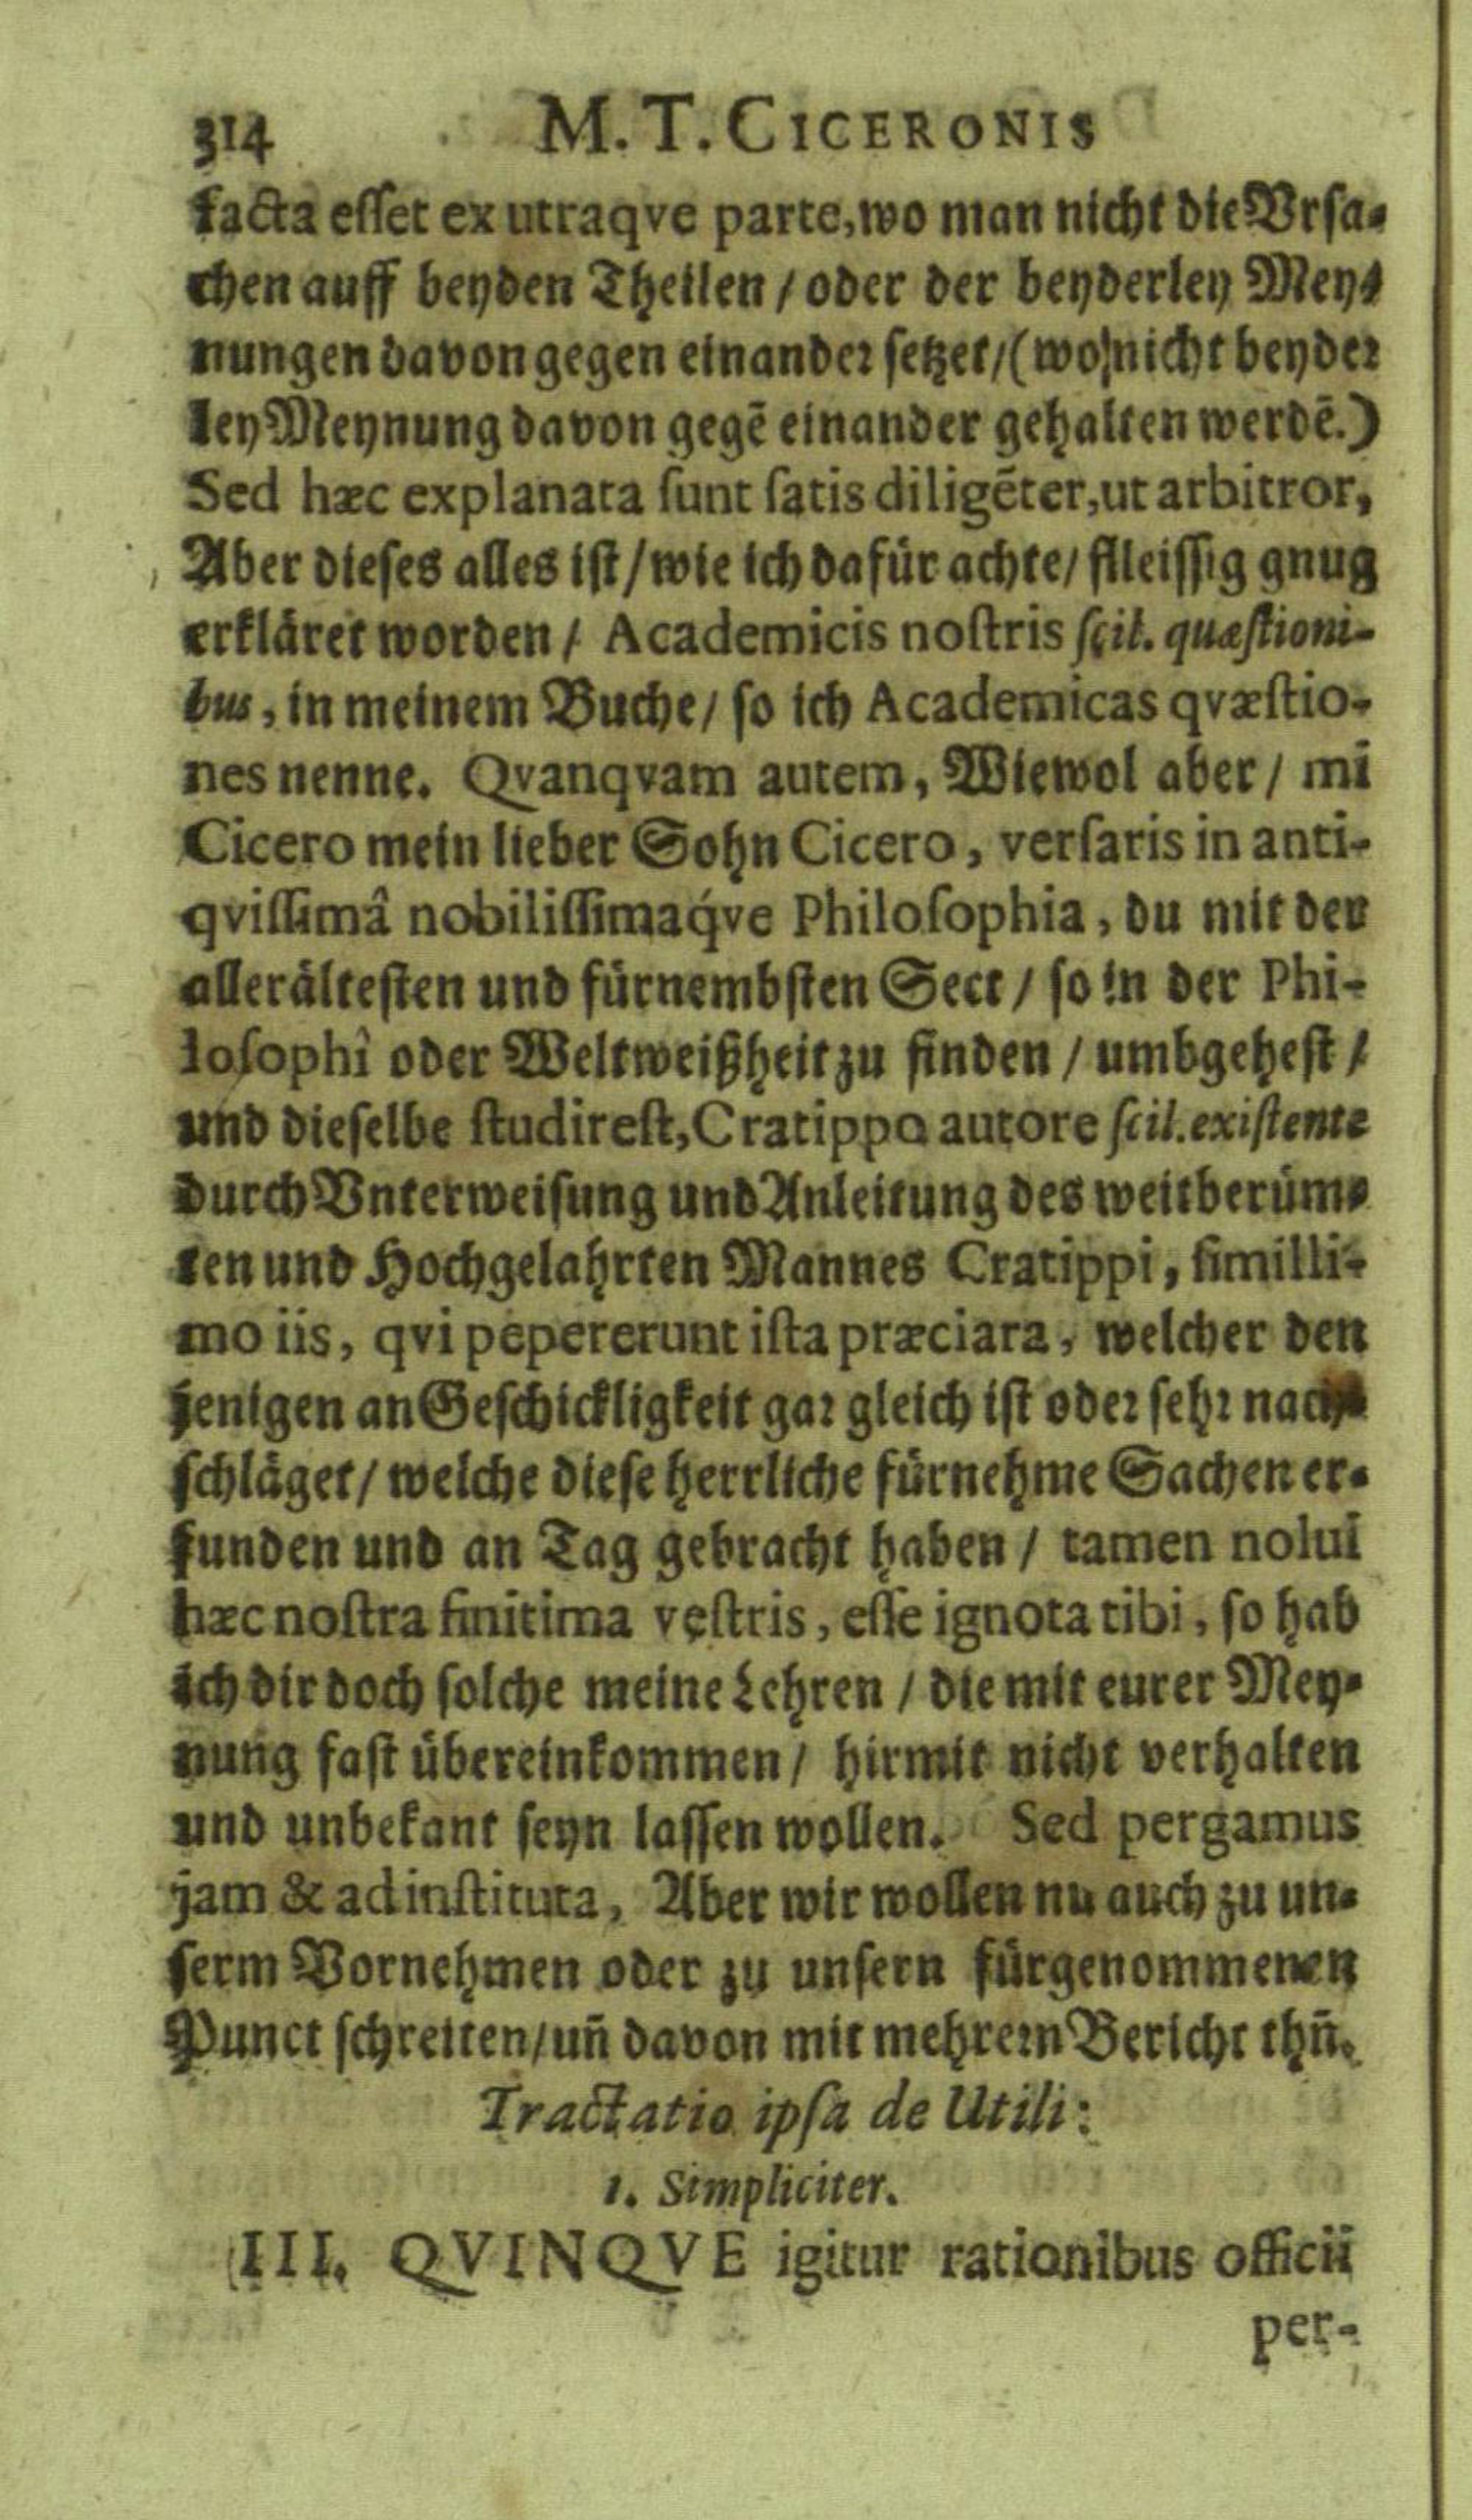 314 M. T. CICERONIS
facta esſet ex utraqve parte, wo man nicht die Vrſa-
chen auff beyden Theilen / oder der beyderley Mey-
nungen davon gegen einander ſetzet / (wo nicht beyder
ley Meynung davon gegē einander gehalten werdē.)
Sed hæc explanata ſunt ſatis diligēter, ut arbitror,
Aber dieſes alles iſt / wie ich dafür achte / flleiſſig gnug
erkläret worden / Academicis noſtris ſcil. quæſtioni-
bus, in meinem Buche / ſo ich Academicas qvæſtio-
nes nenne. Qvanqvam autem, Wiewol aber / mi
Cicero mein lieber Sohn Cicero, verſaris in anti-
qviſſimâ nobiliſſimaq́ve Philoſophia, du mit der
allerälteſten und fürnembſten Sect / ſo in der Phi-
loſophî oder Weltweißheit zu finden / umbgeheſt /
und dieſelbe ſtudireſt, Cratippo autore ſcil. exiſtente
durch Vnterweiſung und Anleitung des weitberüm-
ten und Hochgelahrten Mannes Cratippi, ſimilli-
mo iis, qvi pepererunt iſta præciara, welcher den
jenigen an Geſchickligkeit gar gleich iſt oder ſehr nach-
ſchläget / welche dieſe herrliche fürnehme Sachen er-
funden und an Tag gebracht haben / tamen nolui
hæc noſtra finitima veſtris, eſſe ignota tibi, ſo hab
ich dir doch ſolche meine Lehren / die mit eurer Mey-
nung faſt übereinkommen / hirmit nicht verhalten
und unbekant ſeyn laſſen wollen. Sed pergamus
jam & ad inſtituta, Aber wir wollen nu auch zu un-
ſerm Vornehmen oder zu unſern fürgenommenen
Punct ſchreiten / un̄ davon mit mehrem Bericht thn̄.
Tractatio ipſa de Utili:
1. Simpliciter.
III. QVINQVE igitur rationibus officii
per-